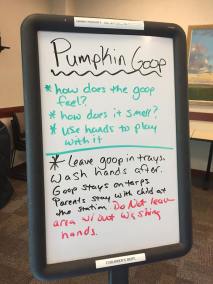 Pumpkin Goop
* how does the goop
feel?
* how does it smell?
* use hands to play
with it
* leave goop in trays.
Wash hands after.
Goop stays on tarps
Parents stay with child at
the station. Do Not leave
area w/out washing
hands.
CHILDREN'S DEPT.